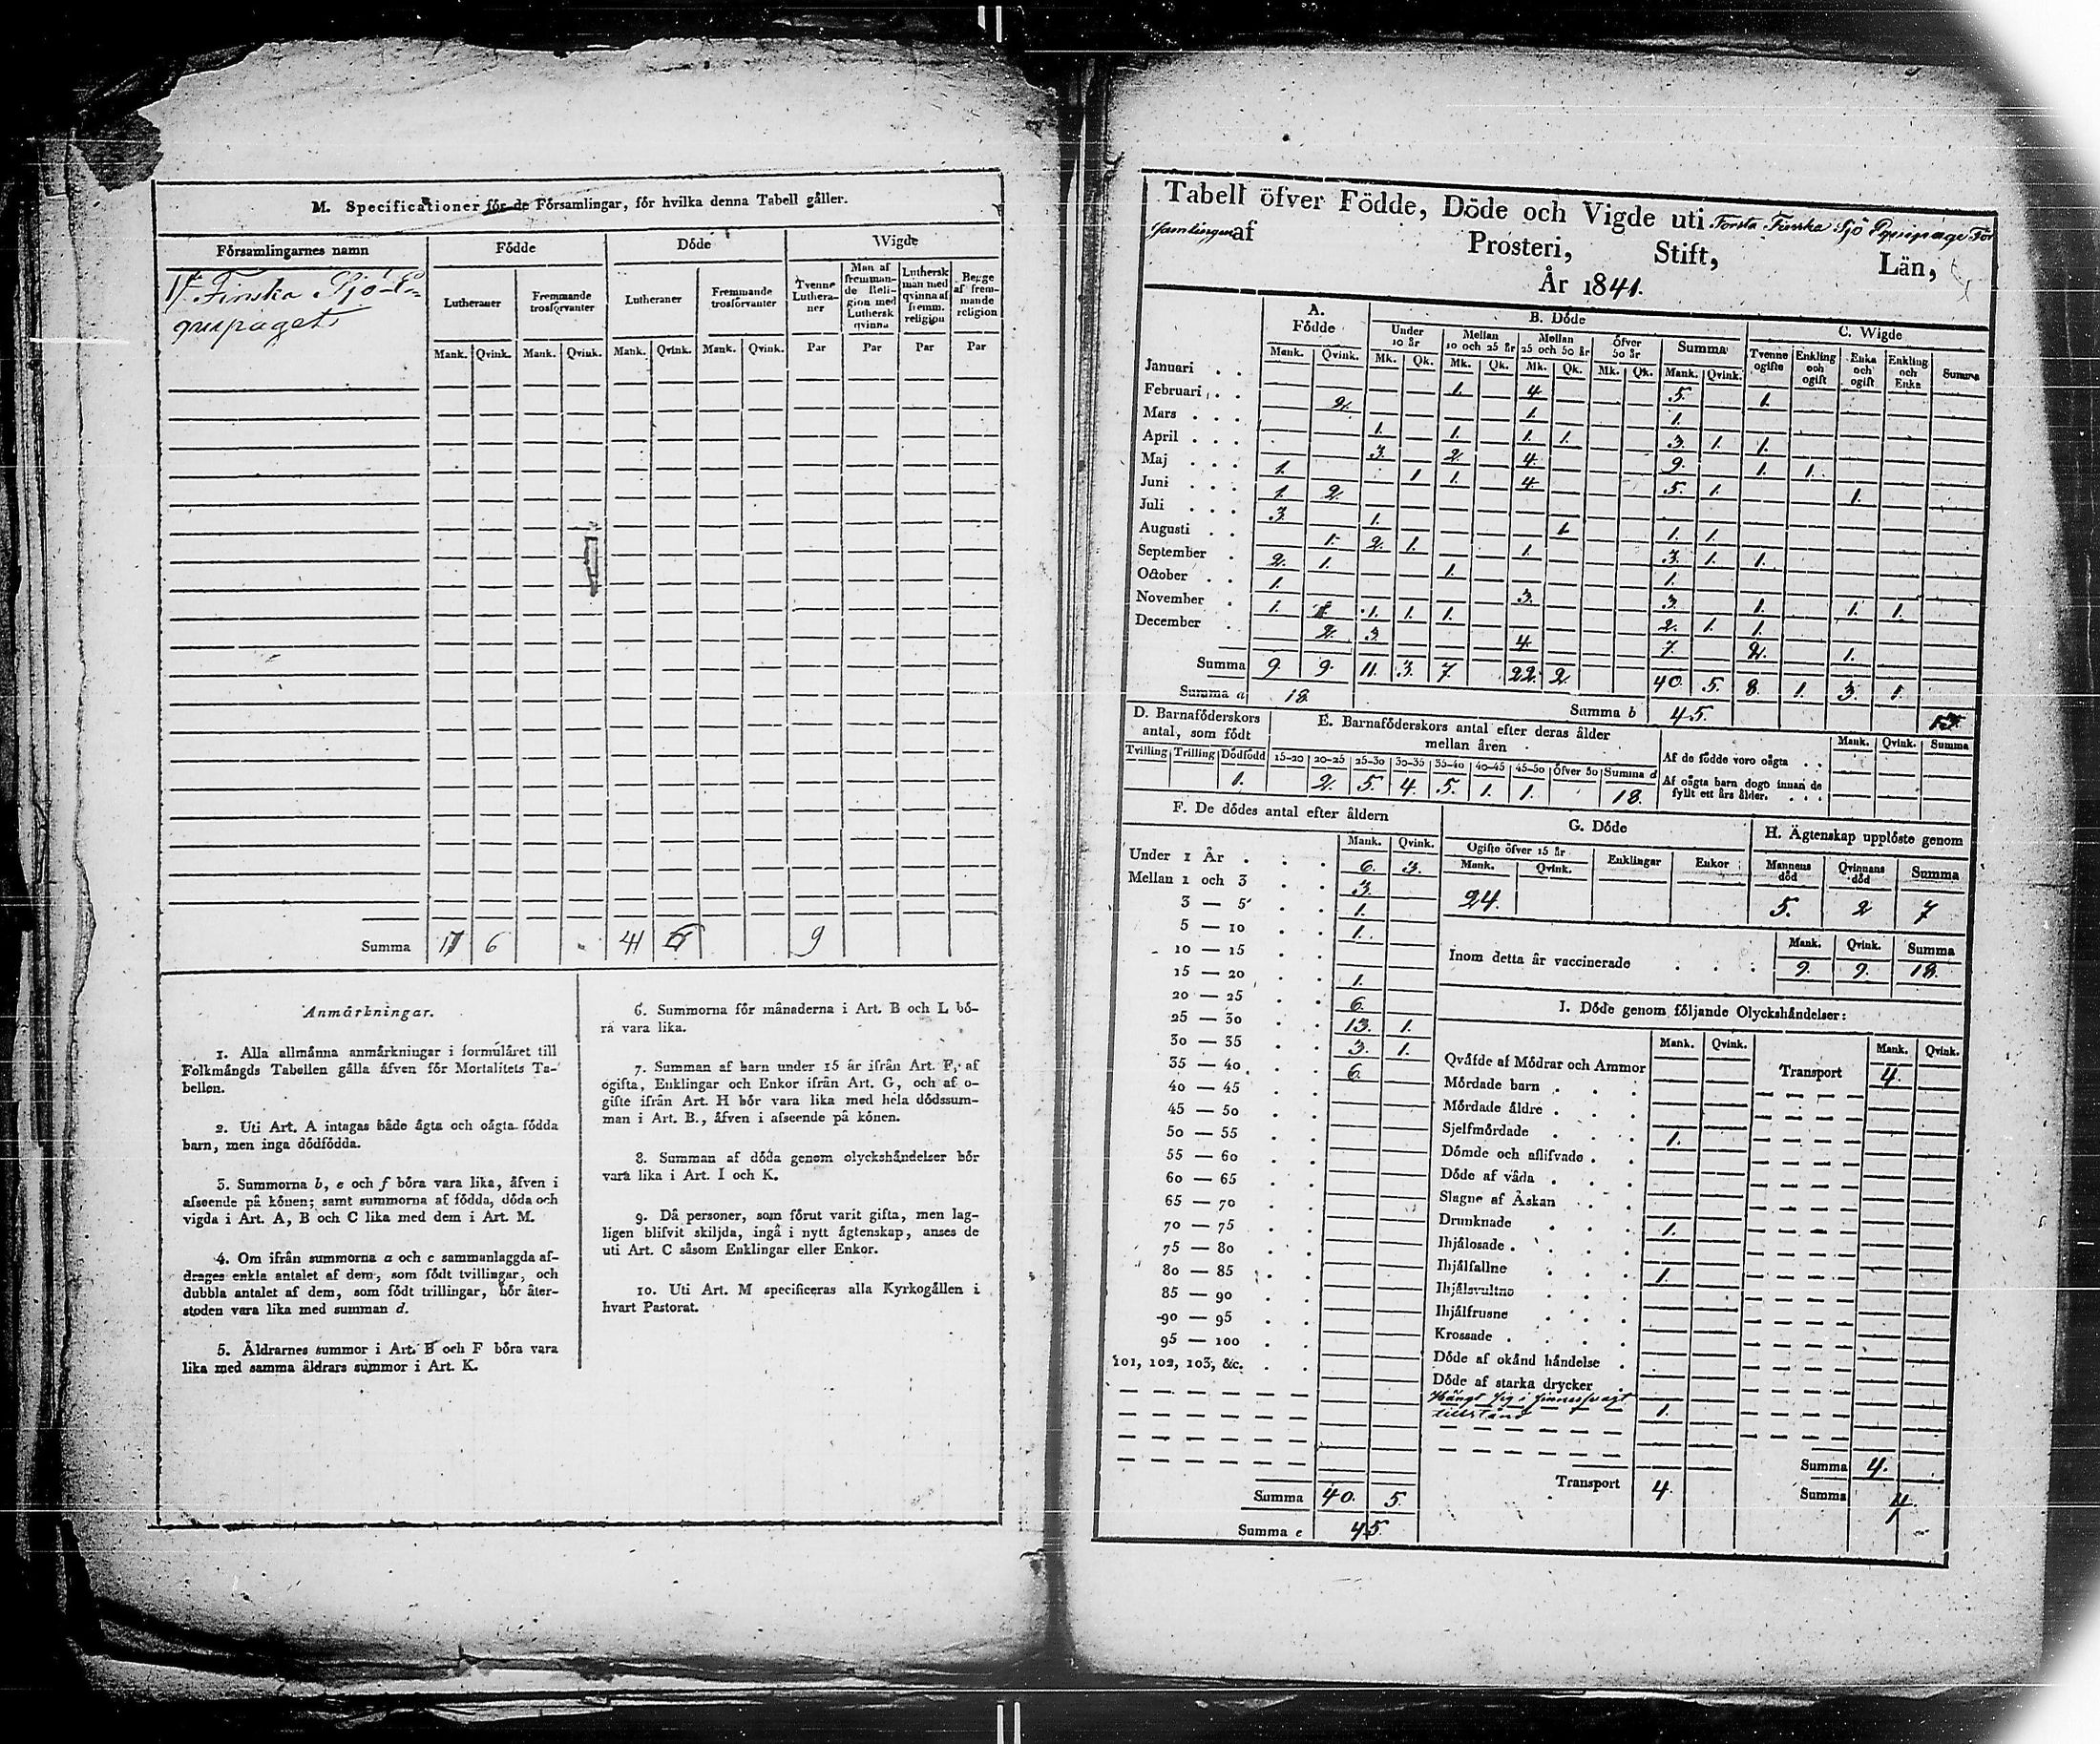 M. Specificationer för de Församlingar, för hvilka denna Tabell gäller.
Församlingarnes namn | Födde | Döde | Wigde
Lutheraner | Fremmande trosförvanter | Lutheraner | Fremmande trosförvanter | Tvenne Lutheraner | Man af fremmande Religion med Luthersk qvinna | Luthersk man med qvinna af fremm. religion | Begge af fremmande religion
Mank. | Qvink. | Mank. | Qvink. | Mank. | Qvink. | Mank. | Qvink. | Par | Par | Par | Par
1sta Finska Sjö-E-
quipaget
Summa 6 41 9
Anmärkningar.
1. Alla allmänna anmärkningar i formuläret till
Folkmängds Tabellen gälla äfven för Mortalitets Ta-
bellen.
2. Uti Art. A intagas både ägta och oägta födda
barn, men inga dödfödda.
3. Summorna b, e och f böra vara lika, äfven i
afseende på könen; samt summorna af födda, döda och
vigda i Art. A, B och C lika med dem i Art. M.
4. Om ifrån summorna a och c sammanlaggda af-
drages enkla antalet af dem, som födt tvillingar, och
dubbla antalet af dem, som födt trillingar, bör åter-
stoden vara lika med summan d.
5. Åldrarnes summor i Art. B och F böra vara
lika med samma åldrars summor i Art. K.
6. Summorna för månaderna i Art. B och L bö-
ra vara lika.
7. Summan af barn under 15 år ifrån Art. F, af
ogifta, Enklingar och Enkor ifrån Art. G, och af o-
gifte ifrån Art. H bör vara lika med hela dödssum-
man i Art. B., äfven i afseende på könen.
8. Summan af döda genom olyckshändelser bör
vara lika i Art. I och K.
9. Då personer, som förut varit gifta, men lag-
ligen blifvit skiljda, ingå i nytt ägtenskap, anses de
uti Art. C såsom Enklingar eller Enkor.
10. Uti Art. M specificeras alla Kyrkogällen i
hvart Pastorat.
Tabell öfver Födde, Döde och Vigde uti Första Finska Sjö Equipage För
samlingen af Prosteri, Stift, Län,
År 1841.
A. Födde | B. Döde | C. Wigde
Under 10 år | Mellan 10 och 25 år | Mellan 25 och 50 år | Öfver 50 år | Summa | Tvenne ogifte | Enkling och ogift | Enka och ogift | Enkling och Enka | Summa
Mank. | Qvink. | Mk. | Qk. | Mk. | Qk. | Mk. | Qk. | Mk. | Qk. | Mank. | Qvink.
Januari . . 1. 4. 5. 1.
Februari . . 2. 1. 1.
Mars . . . 1. 1. 1. 1. 3. 1. 1.
April . . . 3. 2. 4. 9. 1. 1.
Maj . . . 1. 1 1. 4. 5. 1. 1.
Juni . . . 1. 2.
Juli . . . 3. 1. 1. 1. 1.
Augusti . . 1. 2. 1. 1. 3. 1. 1.
September . 2. 1. 1. 1.
October . . 1. 3. 3. 1. 1. 1.
November . 1. 1. 1. 1. 2. 1. 1.
December . 2. 3. 4. 7. 2. 1.
Summa 9. 9. 11. 3. 7. 22. 2. 40. 5. 8. 1. 3. 1.
Summa a 18. Summa b 45. 13.
D. Barnaföderskors antal, som födt | E. Barnaföderskors antal efter deras ålder mellan åren | Mank. | Qvink. | Summa
Tvilling | Trilling | Dödfödd | 15-20 | 20-25 | 25-30 | 30-35 | 35-40 | 40-45 | 45-50 | Öfver 50 | Summa d | Af de födde voro oägta . .
1. 2. 5. 4. 5. 1. 1. 18. Af oägta barn dogo innan de fyllt ett års ålder. . . .
F. De dödes antal efter åldern
Mank. | Qvink.
Under 1 År . . . 6. 3.
Mellan 1 och 3 . . 3.
3 — 5 . . 1.
5 — 10 . . 1.
10 — 15 . .
15 — 20 . . 1.
20 — 25 . . 6.
25 — 30 . . 13. 1.
30 — 35 . . 3. 1.
35 — 40 . . 6.
40 — 45 . .
45 — 50 . .
50 — 55 . .
55 — 60 . .
60 — 65 . .
65 — 70 . .
70 — 75 . .
75 — 80 . .
80 — 85 . .
85 — 90 . .
90 — 95 . .
95 — 100 . .
101, 102, 103, &c. . .
Summa 40. 5.
Summa e 45.
G. Döde
Ogifte öfver 15 år | Enklingar | Enkor
Mank. | Qvink.
24.
H. Ägtenskap upplöste genom
Mannens död | Qvinnans död | Summa
5. 2 7
Mank. | Qvink. | Summa
Inom detta år vaccinerade . . . 9. 9. 18.
I. Döde genom följande Olyckshändelser:
Mank. | Qvink. | Mank. | Qvink.
Qväfde af Mödrar och Ammor Transport 4.
Mördade barn . . .
Mördade äldre . . .
Sjelfmördade . . . 1.
Dömde och aflifvade . .
Döde af våda . . .
Slagne af Åskan . . .
Drunknade . . . 1.
Ihjälosade . . . .
Ihjälfallne . . . 1.
Ihjälsvultne . . .
Ihjälfrusne . . .
Krossade . . . .
Döde af okänd händelse .
Döde af starka drycker
Hängt sig i sinnessvagt
tillstånd 1.
Summa 4.
Transport 4. Summa 4.